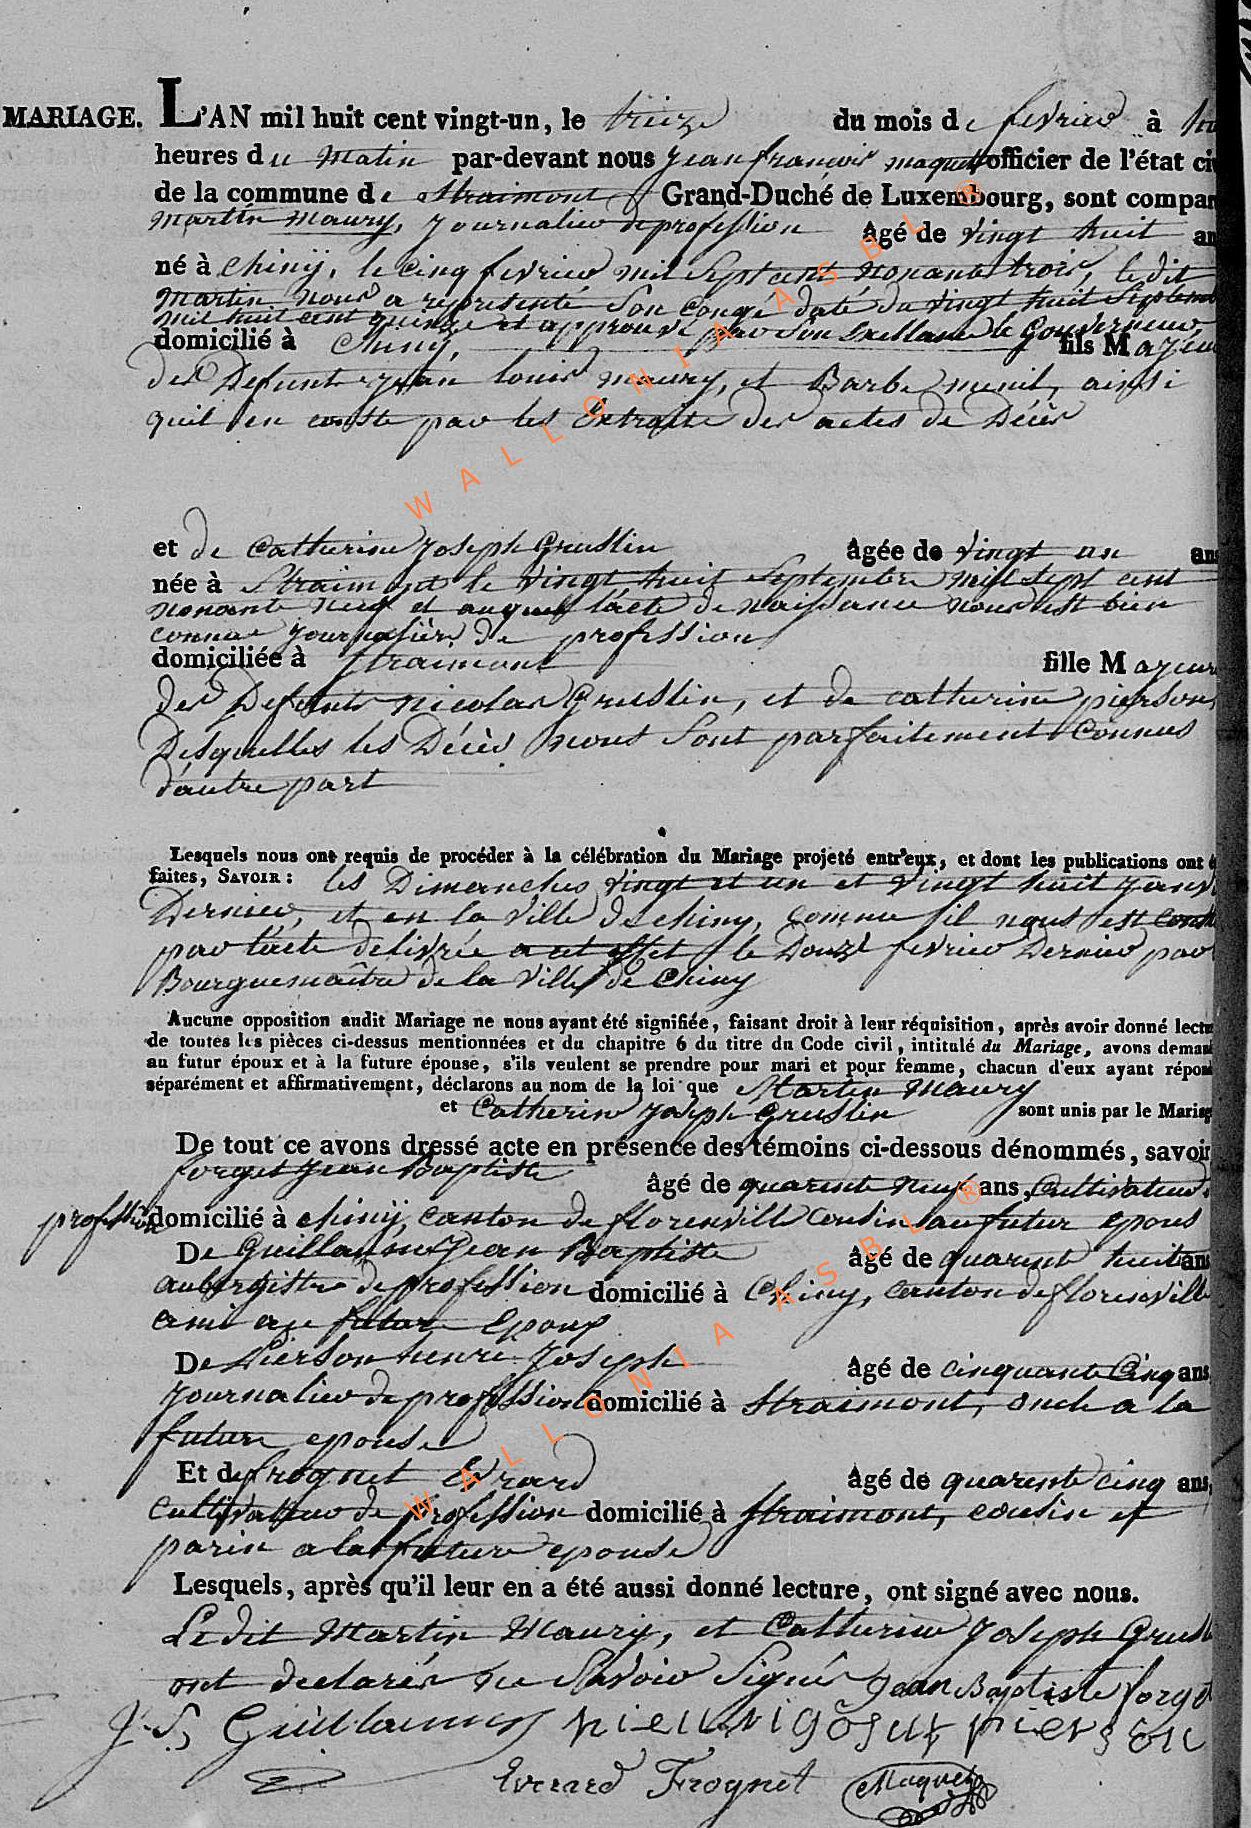 MARIAGE. L'AN mil huit cent vingt-un, le treize du mois de fevrier à
heures du Matin par-devant nous jean françois maquet officier de l'état ci
de la commune de Straimont Grand-Duché de Luxembourg, sont compar
Martin Maury, journalier de profession âgé de vingt huit an
né à Chinÿ, le cinq fevrier mil Sept cent Nonante trois, ledit
Martin nous a representé Son congé daté du vingt huit Septem
mil huit cent quinze et approuvé par Son Exellance le Gouverneur,
domicilié à Chiny, fils Majeur
des Defunt jean louis maury, et Barbe menil, ainsi
quil en conste par les Extraits des actes de Décès
et de Catherine Joseph Gruslin âgée de vingt un ans
née à Straimont le vingt huit Septembre mil Sept cent
nonante neuf et auquel l'acte de naissance nous est bien
connue journalière de profession
domiciliée à Straimont fille Majeure
des Defunts Nicolas Gruslin, et de catherine pierson,
Desquelles les Décès nous Sont parfaitement Connus
d'autre part
Lesquels nous ont requis de procéder à la célébration du Mariage projeté entr'eux, et dont les publications ont é
faites, SAVOIR : les Dimanches vingt et un et vingt huit janv
Dernier, et en la ville de chiny, comme il nous est const
par l'acte delivrée a cet effet le Douze fevrier Dernier par
Bourguemaître de la Ville de Chiny
Aucune opposition audit Mariage ne nous ayant été signifiée, faisant droit à leur réquisition, après avoir donné lectu
de toutes les pièces ci-dessus mentionnées et du chapitre 6 du titre du Code civil, intitulé du Mariage, avons deman
au futur époux et à la future épouse, s'ils veulent se prendre pour mari et pour femme, chacun d'eux ayant répon
séparément et affirmativement, déclarons au nom de la loi que Martin Maury
et Catherine Joseph Gruslin sont unis par le Mariag
De tout ce avons dressé acte en présence des témoins ci-dessous dénommés, savoir
forget jean Baptiste
âgé de quarente neuf ans, Cultivateur de
profession domicilié à chinÿ, canton de florenville cousin au futur epous
De Guillaumes Jean Baptiste âgé de quarent huit ans
aubergiste de profession domicilié à Chiny, canton de florenville
ami au futur Epoux
De Pierson henri Joseph âgé de cinquante Cinq ans
journalier de profession domicilié à Straimont, oncle a la
future epouse
Et de frognet Evrard âgé de quarente cinq ans,
cultivateur de profession domicilié à Straimont, cousin et
parin a la future epouse
Lesquels, après qu'il leur en a été aussi donné lecture, ont signé avec nous.
Ledit Martin Maury, et Catherine Joseph Grusl
ont declarés ne Savoir Signer Jean Baptiste forget
J.-S Guillaumes pierson
Everard Frognet Maquet
WALLONIA ASBL ®
WALLONIA ASBL ®